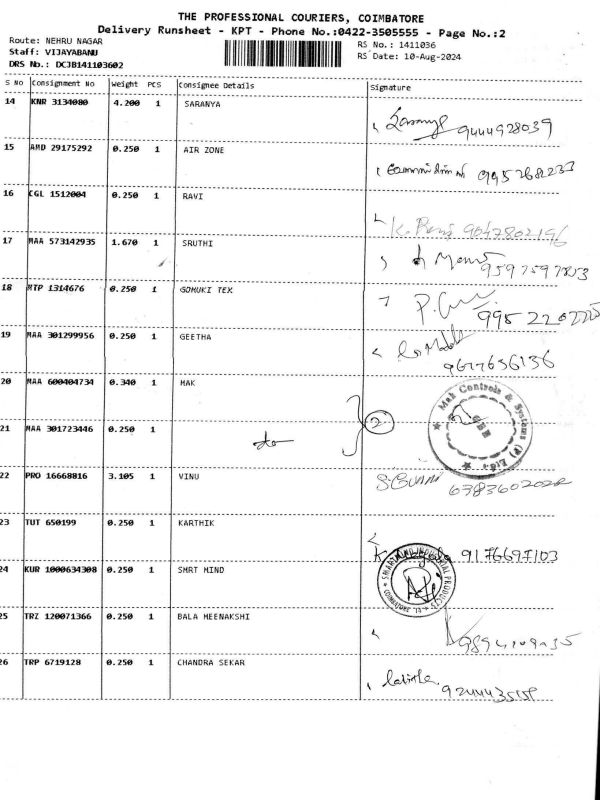 THE PROFESSIONAL COURIERS, COIMBATORE
Delivery Runsheet - KPT - Phone No.:0422-3505555 - Page No.:2
Route: NEHRU NAGAR
Staff: VIJAYABANU
DRS No.: DCJB141103602
RS No.: 1411036
RS Date: 10-Aug-2024
S No Consignment No Weight PCS Consignee Details Signature
14 KNR 3134080 4.200 1 SARANYA
9444928039
15 AMD 29175292 0.250 1 AIR ZONE
16 CGL 1512004 0.250 1 RAVI
9047802196
17 MAA 573142935 1.670 1 SRUTHI
18 MTP 1314676 0.250 1 GOMUKI TEX
19 MAA 301299956 0.250 1 GEETHA
9677656136
20 MAA 600404734 0.340 1 MAK
Mak Controls & Systems (P) Ltd
CBE
21 MAA 301723446 0.250 1
do
2
22 PRO 16668816 3.105 1 VINU
23 TUT 650199 0.250 1 KARTHIK
9176697103
24 KUR 1000634308 0.250 1 SMRT MIND
SMARTMIND INDUSTRIAL PRODUCTS
COIMBATORE - 14
25 TRZ 120071366 0.250 1 BALA MEENAKSHI
26 TRP 6719128 0.250 1 CHANDRA SEKAR
Lalitha